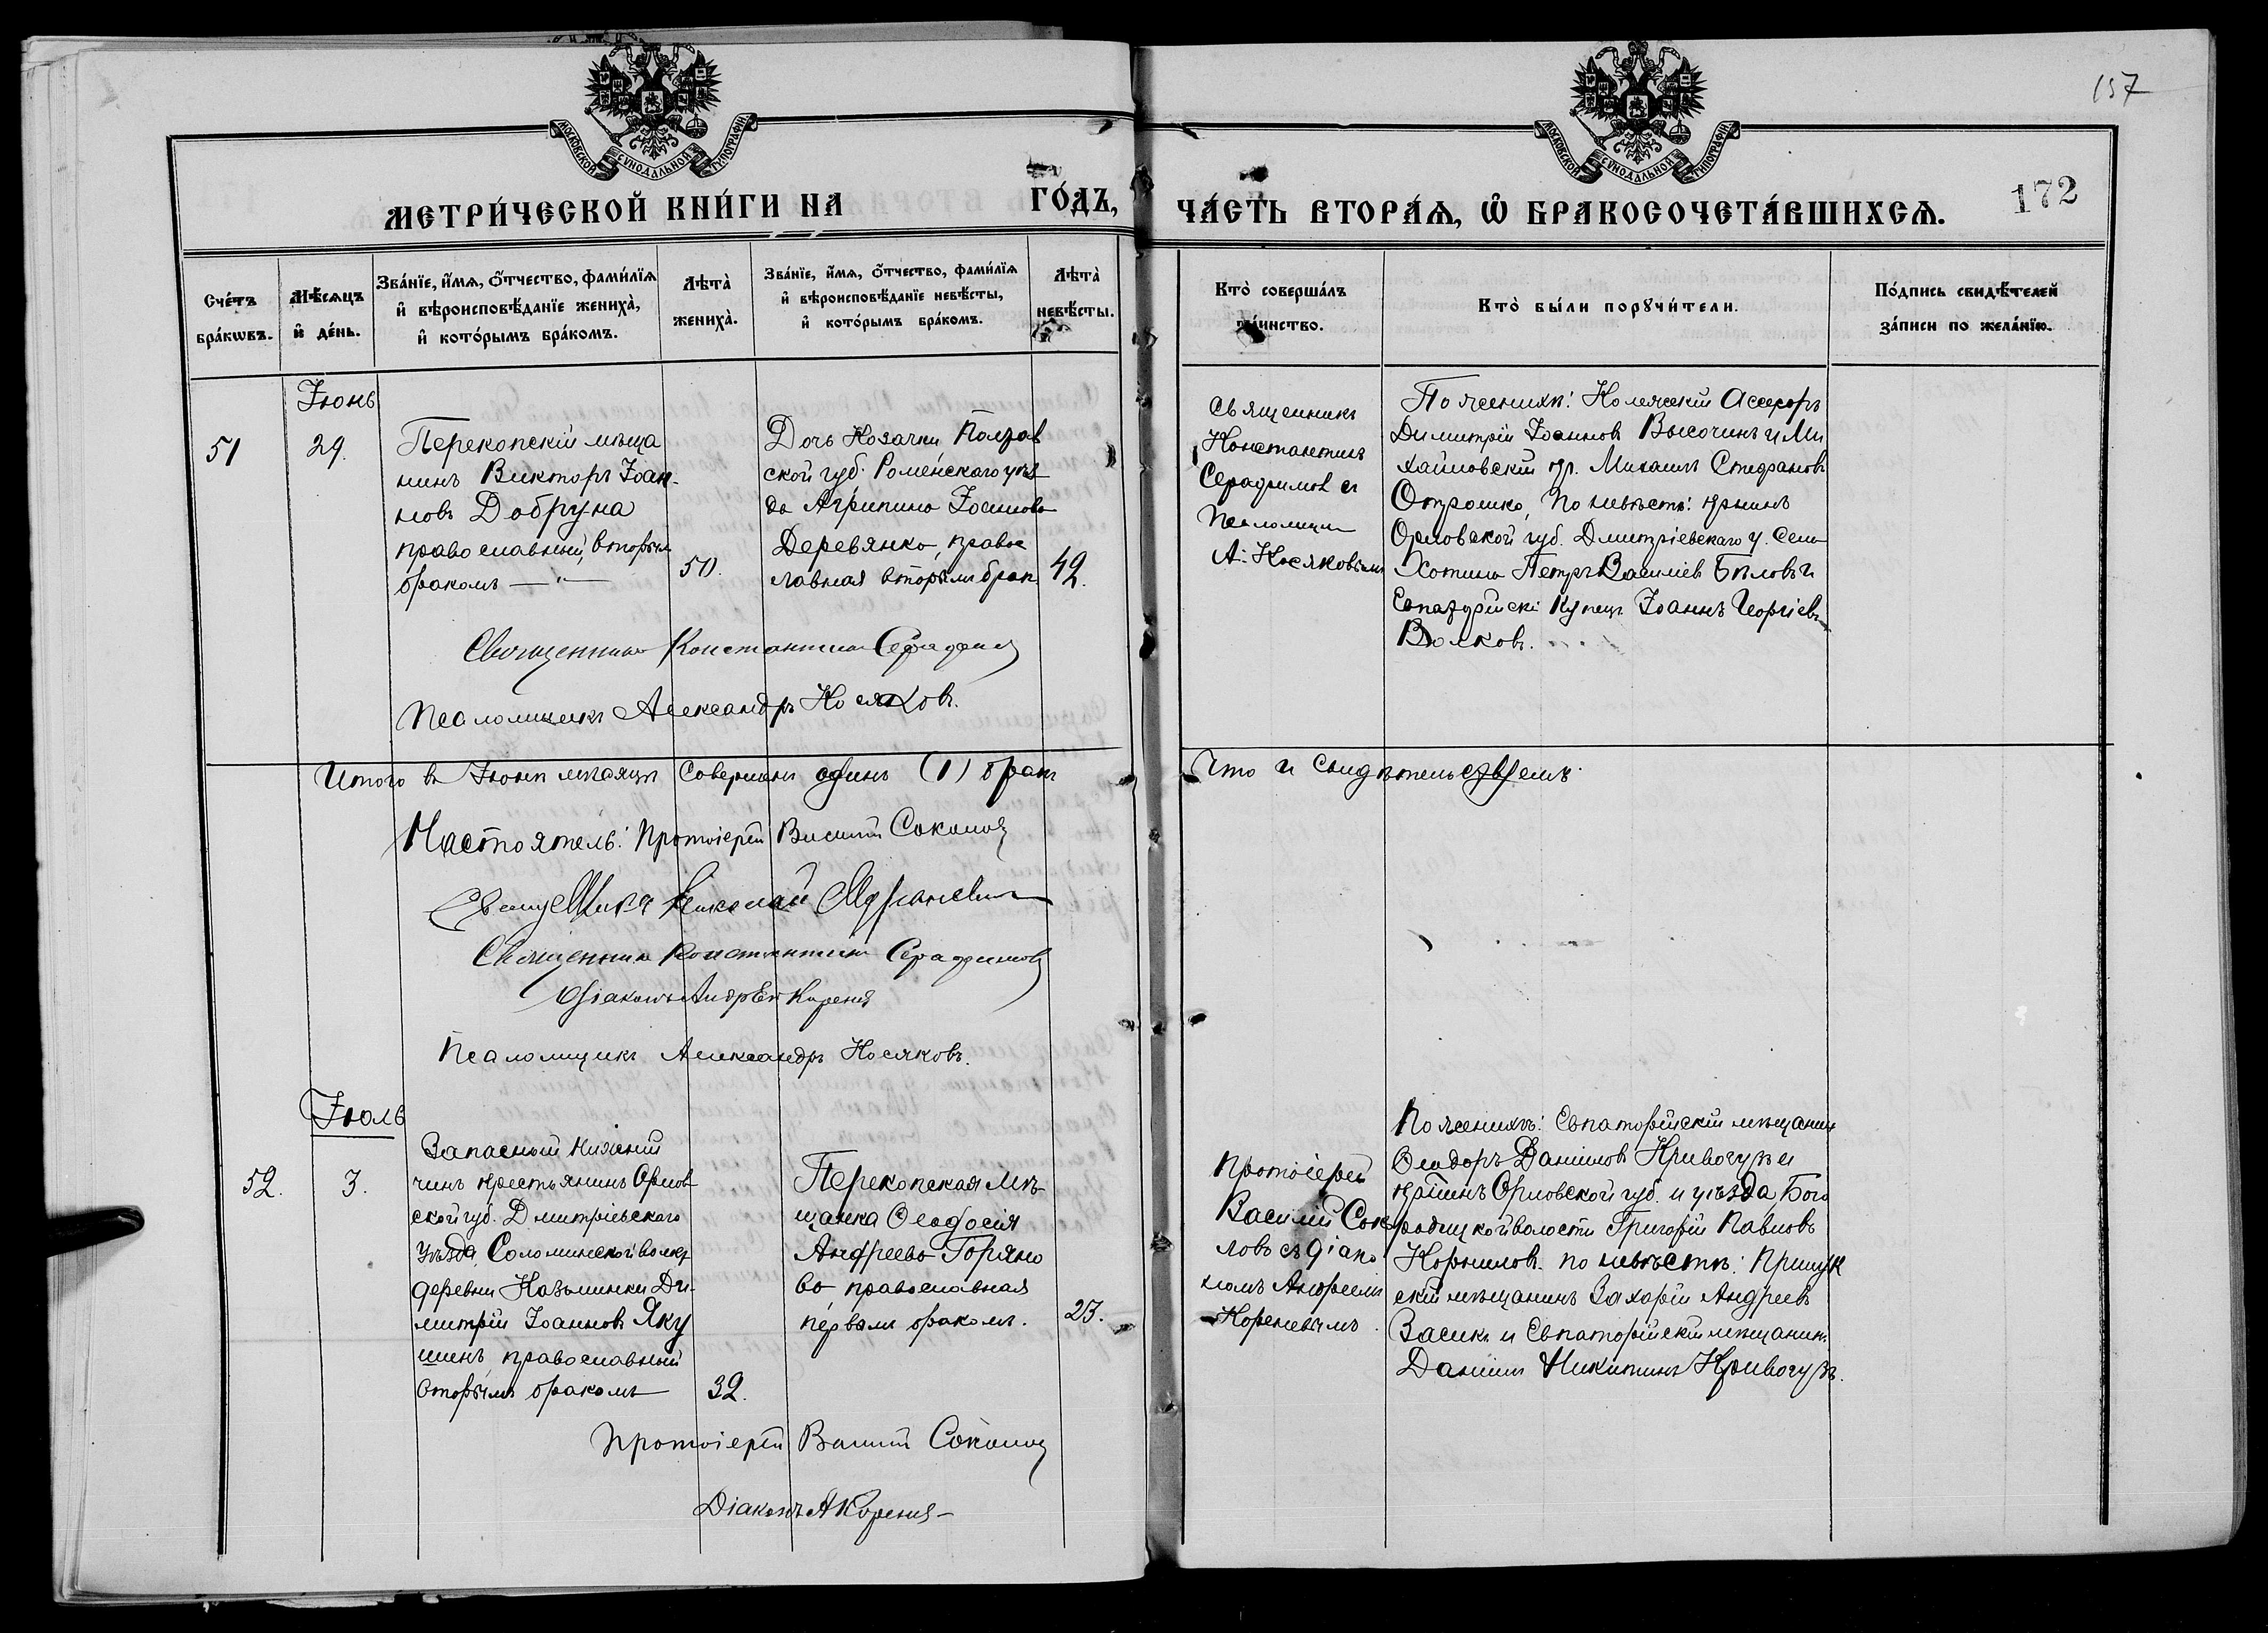 157
МОСКОВСКОЙ СѴНОДАЛЬНОЙ ТѴПОГРАФІИ
МОСКОВСКОЙ СѴНОДАЛЬНОЙ ТИПОГРАФІИ
МЕТРИ́ЧЕСКОЙ КНИ́ГИ НА ГО́ДЪ,
ЧА́СТЬ ВТОРА́Ѧ, Ѽ БРАКОСОЧЕТА́ВШИХСѦ.
172
Сче́тъ
бра́кѡвъ.
Мѣ́сѧцъ
и҆ де́нь.
Зва́нїе, и҆́мѧ, ѻ҆́тчество, фами́лїѧ
и҆ вѣроисповѣ́данїе жениха̀,
и҆ кото́рымъ бра́комъ.
Лѣта̀
жениха̀.
Зва́нїе, и҆́мѧ, ѻ҆́тчество, фами́лїѧ
и҆ вѣроисповѣ́данїе невѣ́сты,
и҆ кото́рымъ бра́комъ.
Лѣта̀
невѣ́сты.
Кто̀ соверша́лъ
та́инство.
Кто̀ бы́ли порꙋчи́тели.
По́дпись свидѣ́телей
за́писи по жела́нїю.
Іюнь
51
29.
Перекопскій мѣща
нинъ Викторъ Іоан-
новъ Добруна
православный, вторым
бракомъ —"—
50.
Дочь Козачки Полтав
ской губ. Роменскаго уѣз
да Агрипина Іоаннова
Деревянко, правос
лавная вторымъ брак.
42.
Священникъ
Константинъ
Серафимовъ съ
Псаломщик
А. Косяковымъ
По женихѣ: Колежскій Асессоръ
Димитрій Іоанновъ Высочинъ и Ми
хайловскій кр. Михаилъ Стефановъ
Отрошко, По невѣстѣ: кр-нинъ
Орловской губ. Дмитріевскаго у. села
Хотина Петръ Василіев Бѣловъ и
Евпаторійскі Купецъ Іоаннъ Георгіевъ
Волковъ.
Священникъ Константинъ Серафимовъ
Псаломщикъ Александръ Косяковъ.
Итого въ Іюнѣ мѣсяцѣ совершенъ одинъ (1) бракъ
Что и свидѣтельствуемъ.
Настоятель: Протоіерей Василій Соколовъ
Священникъ Николай
Священникъ Константинъ Серафимовъ
Діаконъ Андрей Кореневъ
Псаломщикъ Александръ Косяковъ.
Іюль
52.
3.
Запасный нижній
чинъ крестьянинъ Орлов
ской губ. Дмитріевскаго
уѣзда, Соломинской волости
деревни Казьминки Ди-
митрій Іоанновъ Яку
шинъ, православный
вторымъ бракомъ
32.
Перекопская Мѣ-
щанка Ѳеодосія
Андреева Горяно
ва православная
первымъ бракомъ.
23.
Протоіерей
Василій Соко
ловъ съ діако
номъ Андреемъ
Кореневымъ.
По женихѣ: Евпаторійскій мѣщанинъ
Ѳеодоръ Даніиловъ Кривогузъ и
кр-нинъ Орловской губ. и уѣзда, Бого
родицкой волости Григорій Павловъ
Корниловъ. по невѣстѣ: Прилук
скій мѣщанинъ Захарій Андреевъ
Засика и Евпаторійскій мѣщанин.
Даніилъ Никитинъ Кривогузъ.
Протоіерей Василій Соколовъ
Діаконъ А Кореневъ